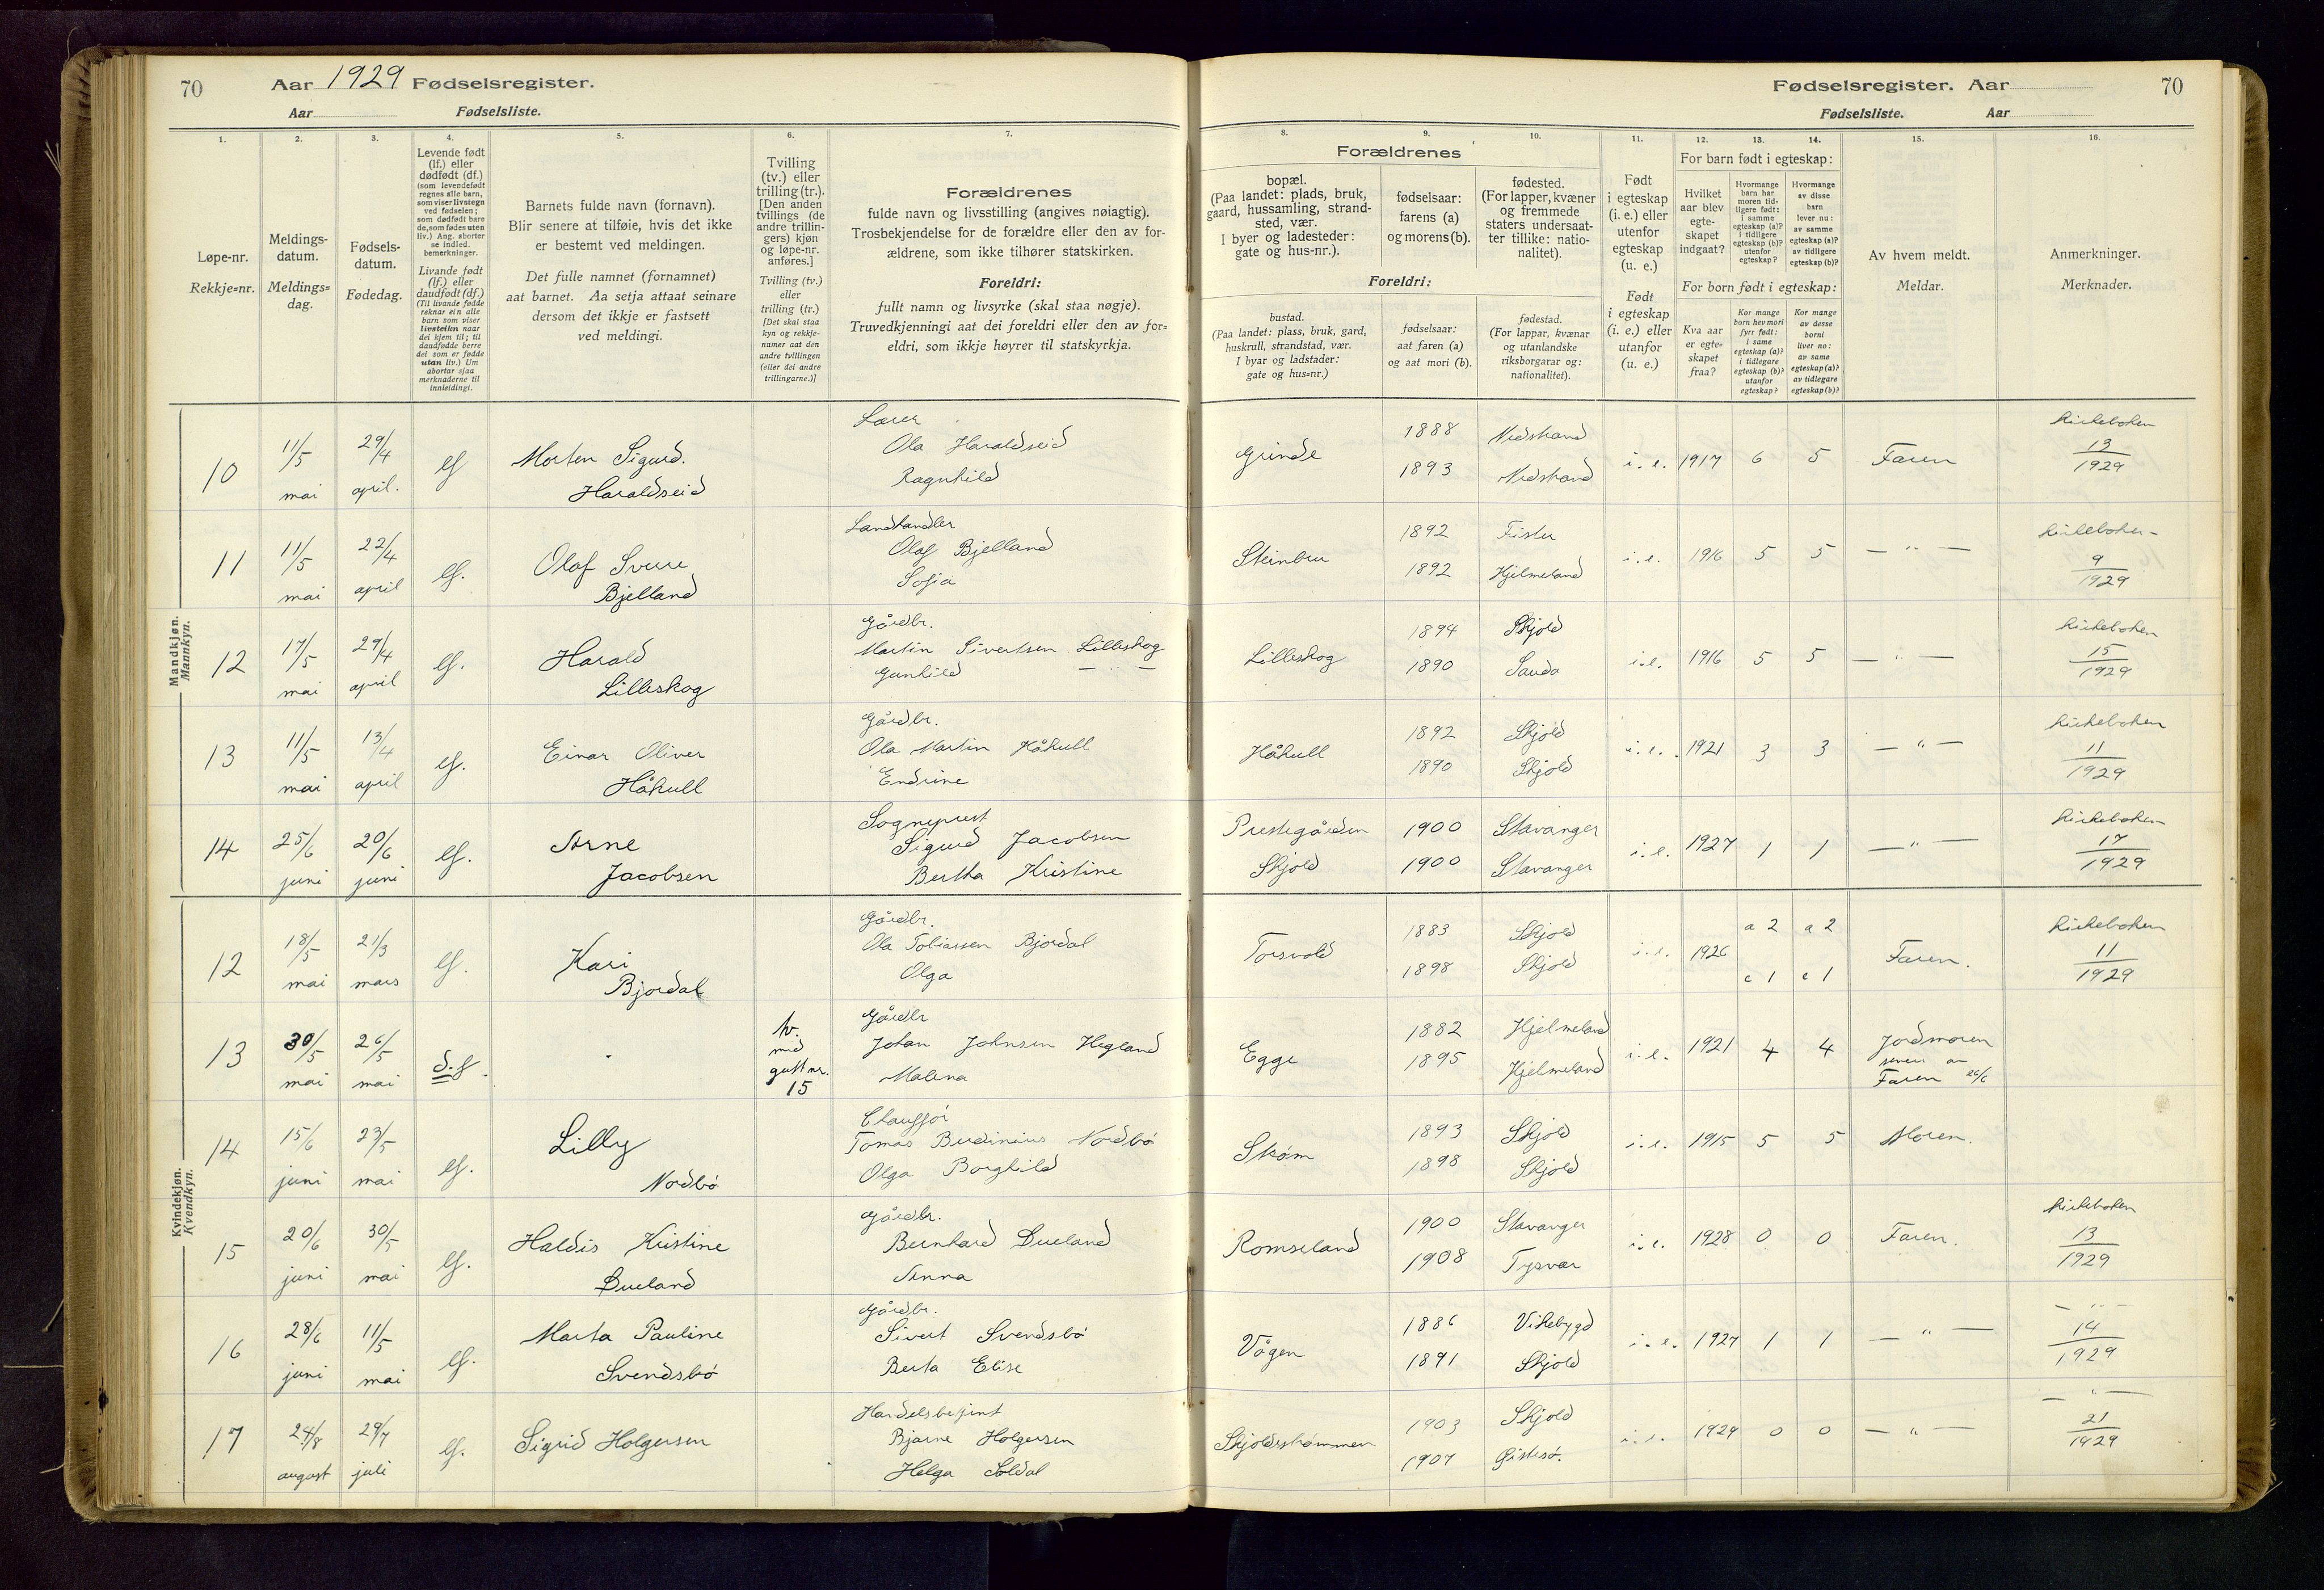 70
Aar 1929 Fødselsregister.
Aar Fødselsliste.
Fødselsregister. Aar 70
Fødselsliste. Aar
1. 2. 3. 4. 5. 6. 7. 8. 9. 10. 11. 12. 13. 14. 15. 16.
Løpe-nr.
Rekkje=nr.
Meldings-
datum.
Meldings=
dag.
Fødsels-
datum.
Fødedag.
Levende født
(lf.) eller
dødfødt (df.)
(som levendefødt
regnes alle barn,
som viser livstegn
ved fødselen;
som dødfødt bare
de, som fødes uten
liv.) Ang. aborter
se indled.
bemerkninger.
Livande født
(lf.) eller
daudfødt (df.)
(Til livande fødde
reknar ein alle
born som viser
livsteikn naar
dei kjem til; til
daudfødde berre
dei som er fødde
utan liv.) Um
abortar sjaa
merknaderne til
innleidingi.
Barnets fulde navn (fornavn).
Blir senere at tilføie, hvis det ikke
er bestemt ved meldingen.
Det fulle namnet (fornamnet)
aat barnet. Aa setja attaat seinare
dersom det ikkje er fastsett
ved meldingi.
Tvilling
(tv.) eller
trilling (tr.).
[Den anden
tvillings (de
andre trillin-
gers) kjøn
og løpe-nr.
anføres.]
Tvilling (tv.)
eller
trilling (tr.)
[Det skal staa
kyn og rekkje-
numer aat den
andre tvillingen
(eller dei andre
trillingarne.)]
Forældrenes
fulde navn og livsstilling (angives nøiagtig).
Trosbekjendelse for de forældre eller den av for-
ældrene, som ikke tilhører statskirken.
Foreldri:
fullt namn og livsyrke (skal staa nøgje).
Truvedkjenningi aat dei foreldri eller den av for=
eldri, som ikkje høyrer til statskyrkja.
Forældrenes
bopæl.
(Paa landet: plads, bruk,
gaard, hussamling, strand-
sted, vær.
I byer og ladesteder:
gate og hus-nr.).
fødselsaar:
farens (a)
og morens (b).
fødested.
(For lapper, kvæner
og fremmede
staters undersaat-
ter tillike: natio-
nalitet).
Foreldri:
bustad.
(Paa landet: plass, bruk, gard,
huskrull, strandstad, vær.
I byar og ladstader:
gate og hus=nr.)
fødselsaar:
aat faren (a)
og aat mori (b).
fødestad.
(For lappar, kvænar
og utanlandske
riksborgarar og:
nationalitet).
Født
i egteskap
(i. e.) eller
utenfor
egteskap
(u. e.)
Født
i egteskap
(i. e.) eller
utanfor
egteskap
(u. e.)
For barn født i egteskap:
Hvilket
aar blev
egte-
skapet
indgaat?
Hvormange
barn har
moren tid-
ligere født:
i samme
egteskap (a)?
i tidligere
egteskap (b)?
utenfor
egteskap?
Hvormange
av disse
barn
lever nu:
av samme
egteskap (a)?
av tidligere
egteskap (b)?
For born født i egteskap:
Kva aar
er egte=
skapet
fraa?
Kor mange
born hev mori
fyrr født:
i same
egteskap (a)?
i tidlegare
egteskap (b)?
utanfor
egteskap?
Kor mange
av desse
borni
liver no:
av same
egteskap (a)?
av tidlegare
egteskap (b)?
Av hvem meldt.
Meldar.
Anmerkninger.
Merknader.
Mandkjøn.
Mannkyn.
10 11/5 mai 29/4 april. lf Morten Sigurd.
Haraldseid
Lærer
Ola Haraldseid
Ragnhild
Grinde 1888 Nedstrand
1893 Nedstrand
i. e. 1917 6 5 Faren Kirkeboken
13
1929
11 11/5 mai 22/4 april lf. Olaf Sverre
Bjelland
Landhandler
Olaf Bjelland
Sofia
Steinbru 1892 Fister
1892 Hjelmeland
i. e. 1916 5 5 — " — Kirkeboken
9
1929
12 17/5 mai 29/4 april lf. Harald
Lilleskog
Gårdbr.
Martin Sivertsen Lilleskog
Gunhild — " —
Lilleskog 1894 Skjold
1890 Sauda
i. e. 1916 5 5 — " — Kirkeboken
15
1929
13 11/5 mai 13/4 april lf. Einar Oliver
Håkull
Gårdbr.
Ola Martin Håkull
Endrine
Håkull 1892 Skjold
1890 Skjold
i. e. 1921 3 3 — " — Kirkeboken
11
1929
14 25/6 juni 20/6 juni lf. Arne
Jacobsen
Sogneprest
Sigurd Jacobsen
Bertha Kristine
Prestegården 1900 Stavanger
Skjold 1900 Stavanger
i. e. 1927 1 1 — " — Kirkeboken
17
1929
Kvindekjøn.
Kvendkyn.
12 18/5 mai 21/3 mars lf. Kari
Bjordal
Gårdbr.
Ola Tobiassen Bjordal
Olga
Torsvold 1883 Skjold
1898 Skjold
i. e. 1926 a 2 a 2
c 1 c 1
Faren. Kirkeboken
11
1929
13 30/5 mai 26/5 mai d.f. tv.
med
gutt nr.
15
Gårdbr
Johan Johnsen Hegland
Malena
Egge 1882 Hjelmeland
1895 Hjelmeland
i. e. 1921 4 4 Jordmoren
senere av
Faren 26/6
14 15/6 juni 23/5 mai lf. Lilly
Nordbø
Chauffør
Tomas Berdinius Nordbø
Olga Borghild
Skåm 1893 Skjold
1898 Skjold
i. e. 1915 5 5 Moren.
15 20/6 juni 30/5 mai lf. Haldis Kristine
Dueland
Gårdbr.
Bernhard Dueland
Anna
Romseland 1900 Stavanger
1908 Tysvær
i. e. 1928 0 0 Faren. Kirkeboken
13
1929
16 28/6 juni 11/5 mai lf. Marta Pauline
Svendsbø
Gårdbr.
Sivert Svendsbø
Berta Elise
Vågen 1886 Vikebygd
1891 Skjold
i. e. 1927 1 1 — " — — " —
14
1929
17 24/8 august 29/7 juli lf. Sigrid Holgersen
Handelsbetjent
Bjarne Holgersen
Helga Soldal
Skjoldestrømmen 1903 Skjold
1907 Øistesø.
i. e. 1929 0 0 — " — — " —
21
1929